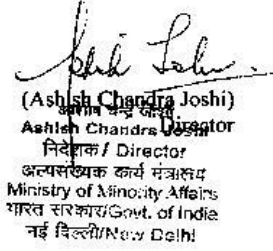 (Ashish Chandra Joshi)
Director
आशीष चन्द्र जोशी
Ashish Chandra Joshi
निदेशक / Director
अल्पसंख्यक कार्य मंत्रालय
Ministry of Minority Affairs
भारत सरकार/Govt. of India
नई दिल्ली/New Delhi